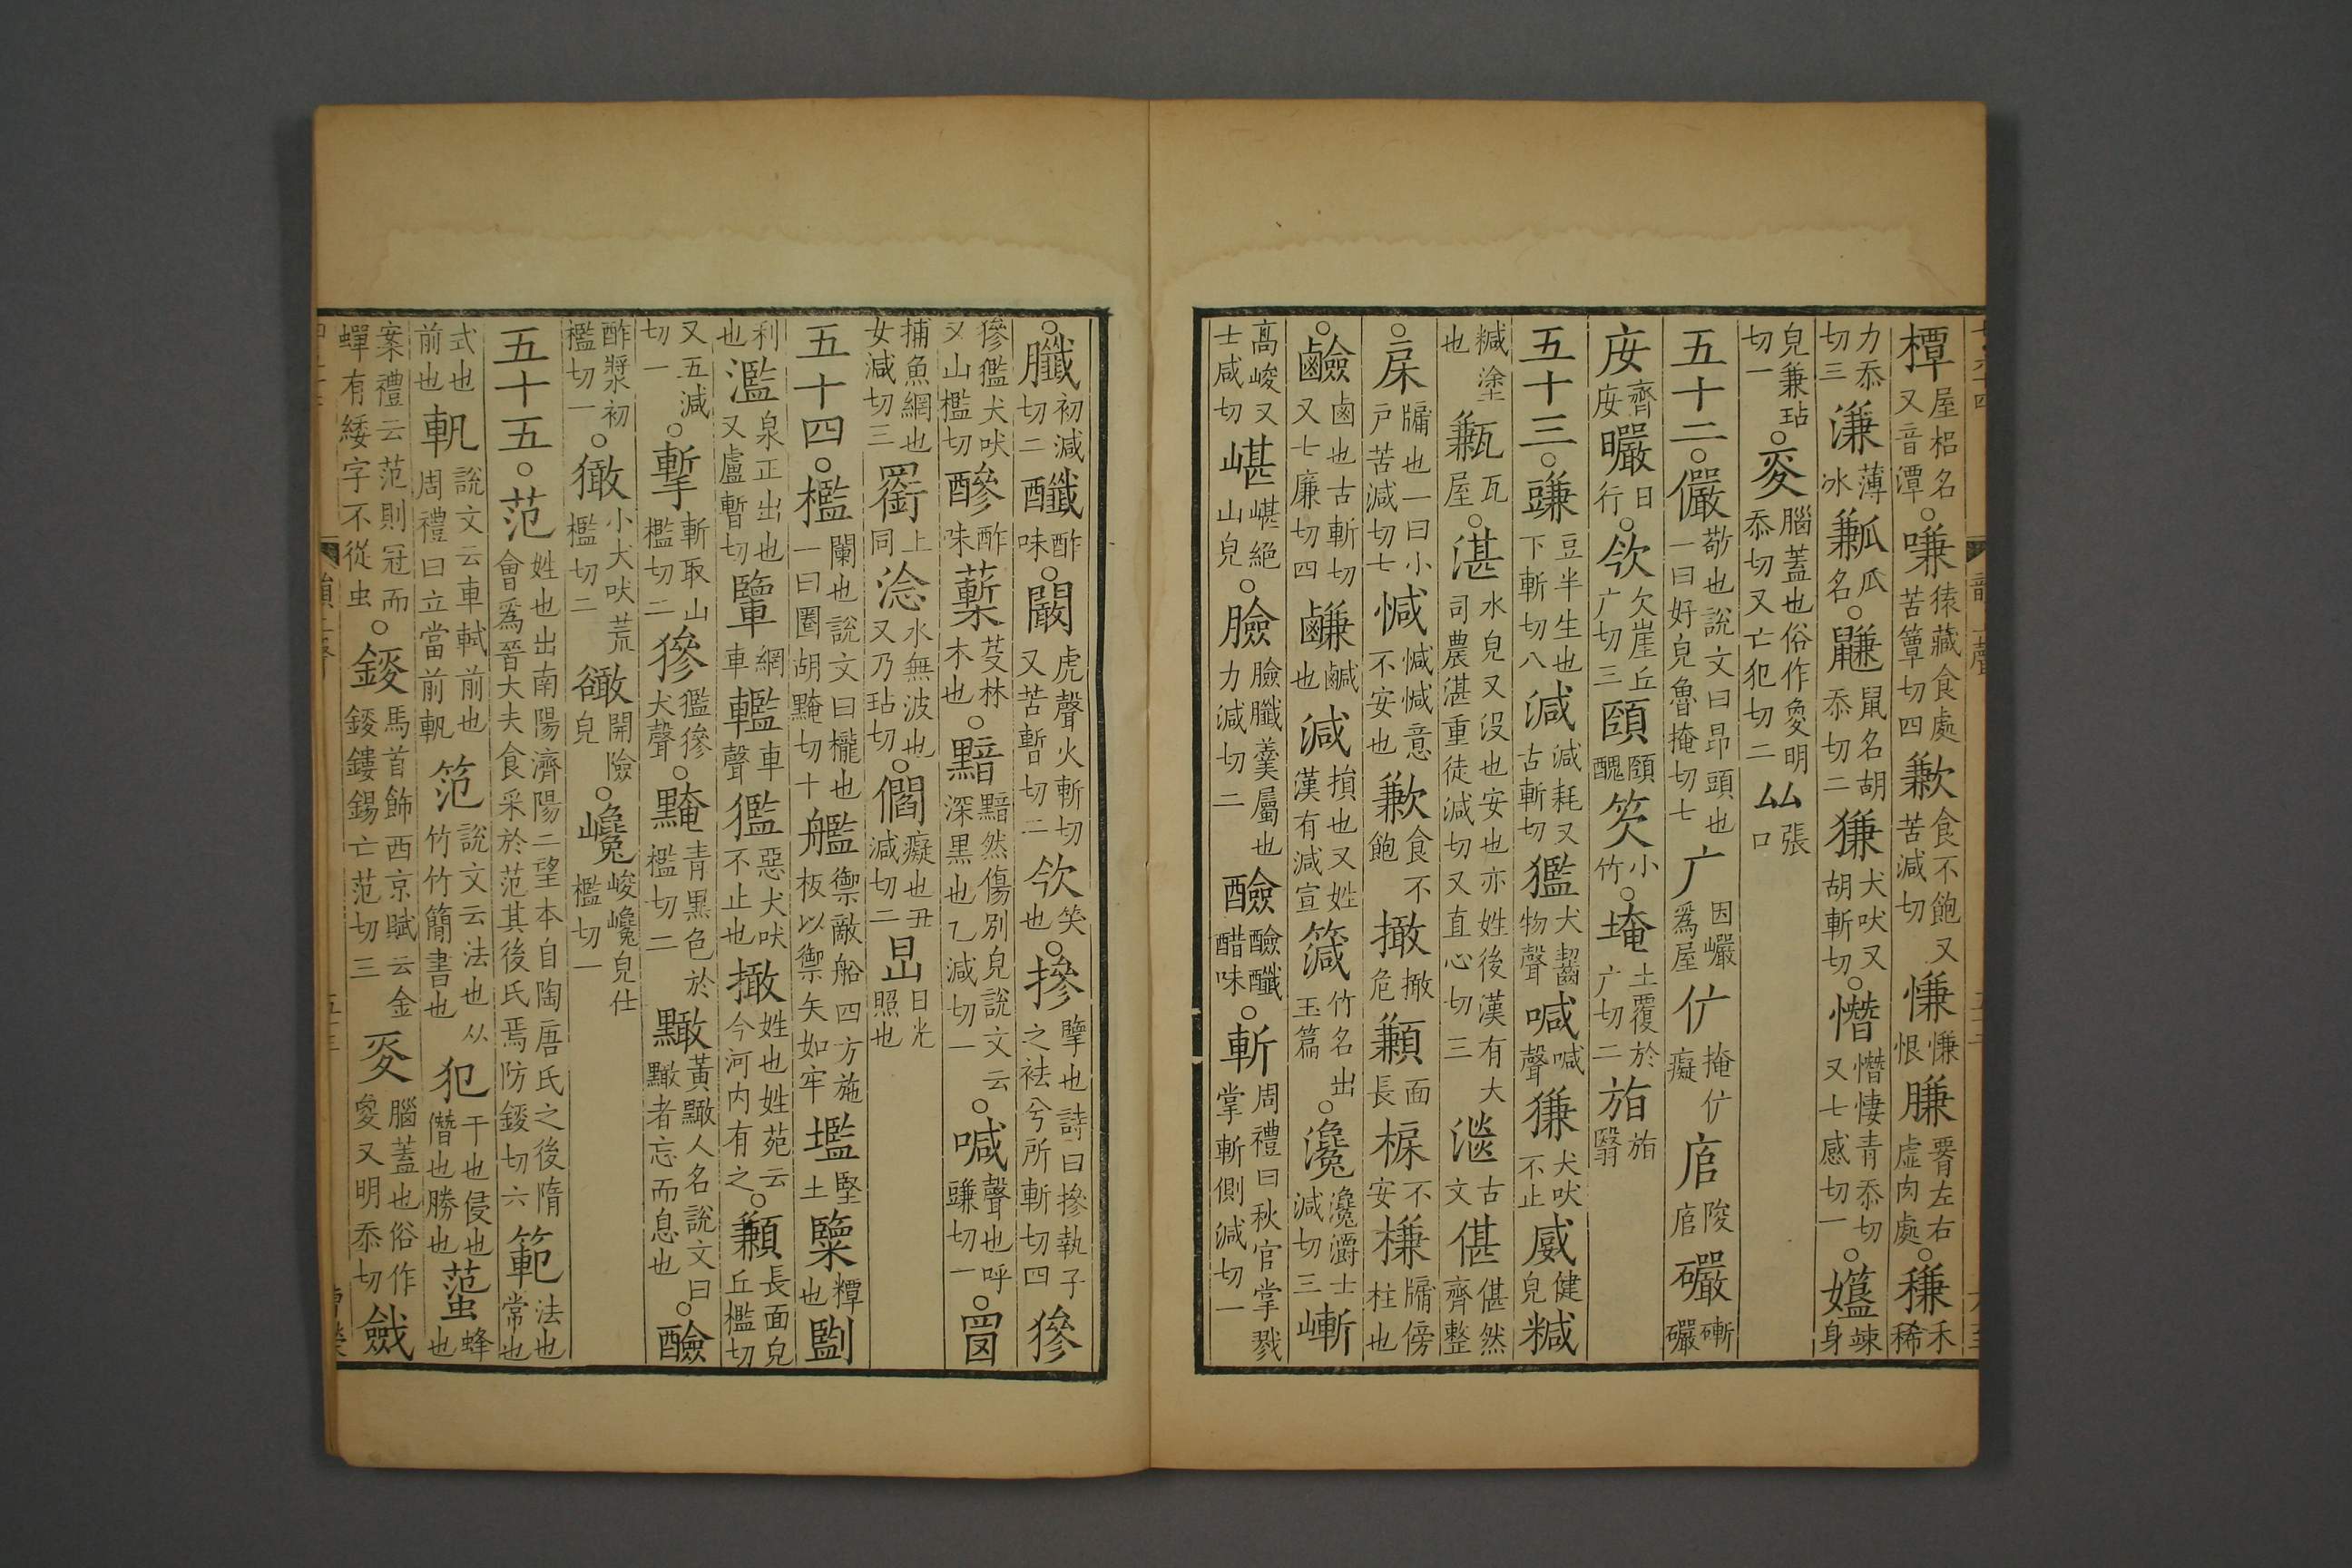 橝屋梠名又音潭○嗛猿藏食處苦簟切四歉食不飽又苦減切慊慊恨膁腰左右虛肉處○稴禾稀
力忝切三溓薄冰㼓瓜名○鼸鼠名胡忝切二㺌犬吠又胡斬切○憯憯悽青忝切又七感切一○㜮竦身
皃兼玷切一○㚇腦蓋也俗作㚇明忝切又亡犯切二厸張口
五十二○儼敬也說文曰昂頭也一曰好皃魯掩切七广因巖爲屋㐸掩㐸癡㢈陖㢈礹磛礹
㡴齊㡴曮日行○欦欠崖丘广切三頤頤醜䇞小竹○埯土覆於广切二㫈㫈翳
五十三○豏豆半生也下斬切八減減耗又古斬切㺝犬齧物聲喊喊聲㺌犬吠不止㺂健皃䊏
䊏塗也㼓瓦屋○湛水皃又沒也安也亦姓後漢有大司農湛重徒減切又直心切三㴴古文偡偡然齊整
○㦿牖也一曰小戶苦減切七㦗㦗㦗意不安也歉食不飽撖撖危顜面長槏不安槏牖傍柱也
○鹼鹵也古斬切又七廉切四鹻鹹也減損也又姓漢有減宣䈒竹名出玉篇○瀺瀺灂士減切三嶃
高峻又士咸切嵁嵁絕山皃○臉臉臘羹屬也力減切二醶醶䤘醋味○斬周禮曰秋官掌戮掌斬側減切一
○䑎初減切二䤘酢味○闞虎聲火斬切又苦暫切二欦笑也○摻擥也詩曰摻執子之袪兮所斬切四㺑
㺑㺝犬吠又山檻切醦酢味蔪芟林木也○黯黯然傷別皃說文云深黑也乙減切一○喊聲也呼豏切一○㘝
捕魚網也女減切三罱上同淰水無波也又乃玷切○僴癡也丑減切二㫜日光照也
五十四○檻闌也說文曰櫳也一曰圈胡黤切十艦禦敵船四方施板以禦矢如牢壏堅土糮糣也㔋
利也濫泉正出也又盧暫切䡵網車轞車聲㺝惡犬吠不止也撖姓也姓苑云今河內有之○顜長面皃丘檻切
又五減切一○摲斬取山檻切二㺑㺝㺑犬聲○黤青黑色於檻切二黬黃黬人名說文曰黬者忘而息也○醶
酢漿初檻切一○㺖小犬吠荒檻切二㘎開險皃○巉峻巉皃仕檻切一
五十五○范姓也出南陽濟陽二望本自陶唐氏之後隋會爲晉大夫食采於范其後氏焉防錽切六範法也常也
式也前也軓說文云車軾前也周禮曰立當前軓笵說文云法也从竹竹簡書也犯干也侵也僭也勝也䗊蜂也
案禮云范則冠而蟬有緌字不從虫○錽馬首飾西京賦云金錽鏤鍚亡范切三㚇腦蓋也俗作㚇又明忝切㪘